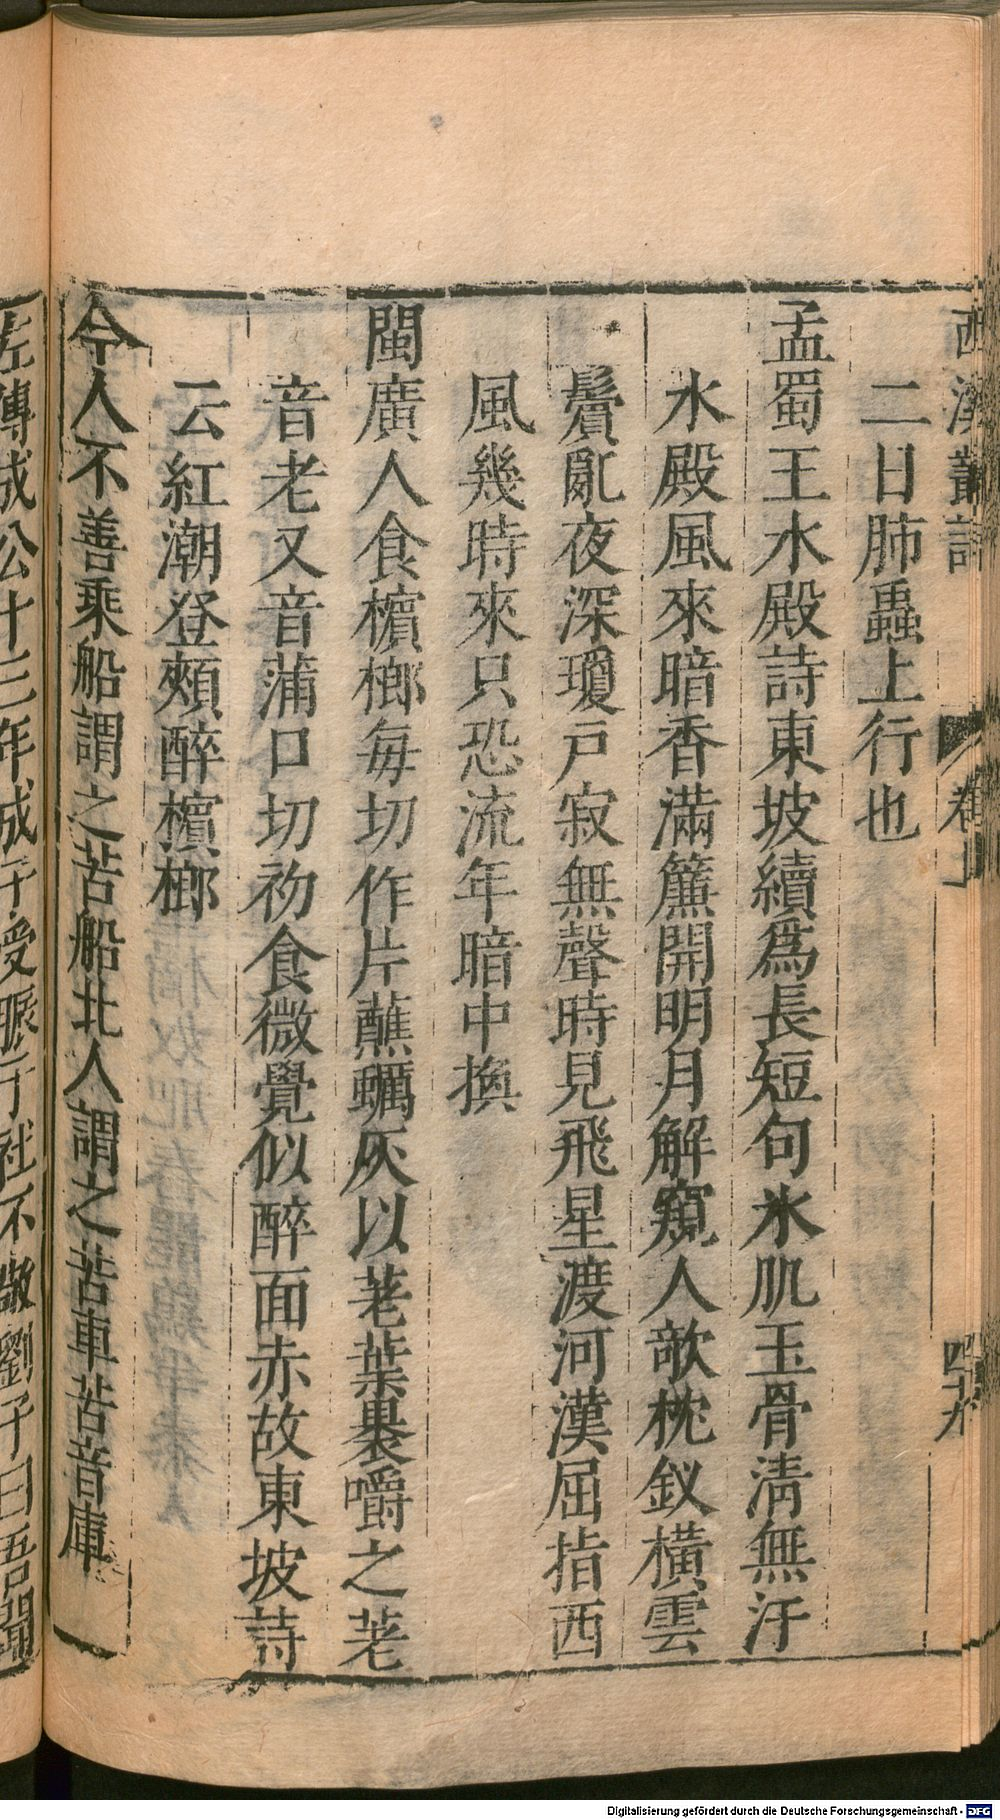 西溪叢語
卷上
二日肺蟲上行也
孟蜀王水殿詩東坡續爲長短句氷肌玉骨淸無汗
水殿風來暗香滿簾開明月解窺人欹枕釵橫雲
鬢亂夜深瓊戸寂無聲時見飛星渡河漢屈指西
風幾時來只恐流年暗中換
閩廣人食檳榔每切作片蘸蠣灰以荖葉裹嚼之荖
音老又音蒲口切初食微覺似醉面赤故東坡詩
云紅潮登頰醉檳榔
今人不善乘船謂之苦船北人謂之苦車苦音庫
左傳成公十三年成子受脤于社不敬劉子曰吾聞
Digitalisierung gefördert durch die Deutsche Forschungsgemeinschaft - DFG